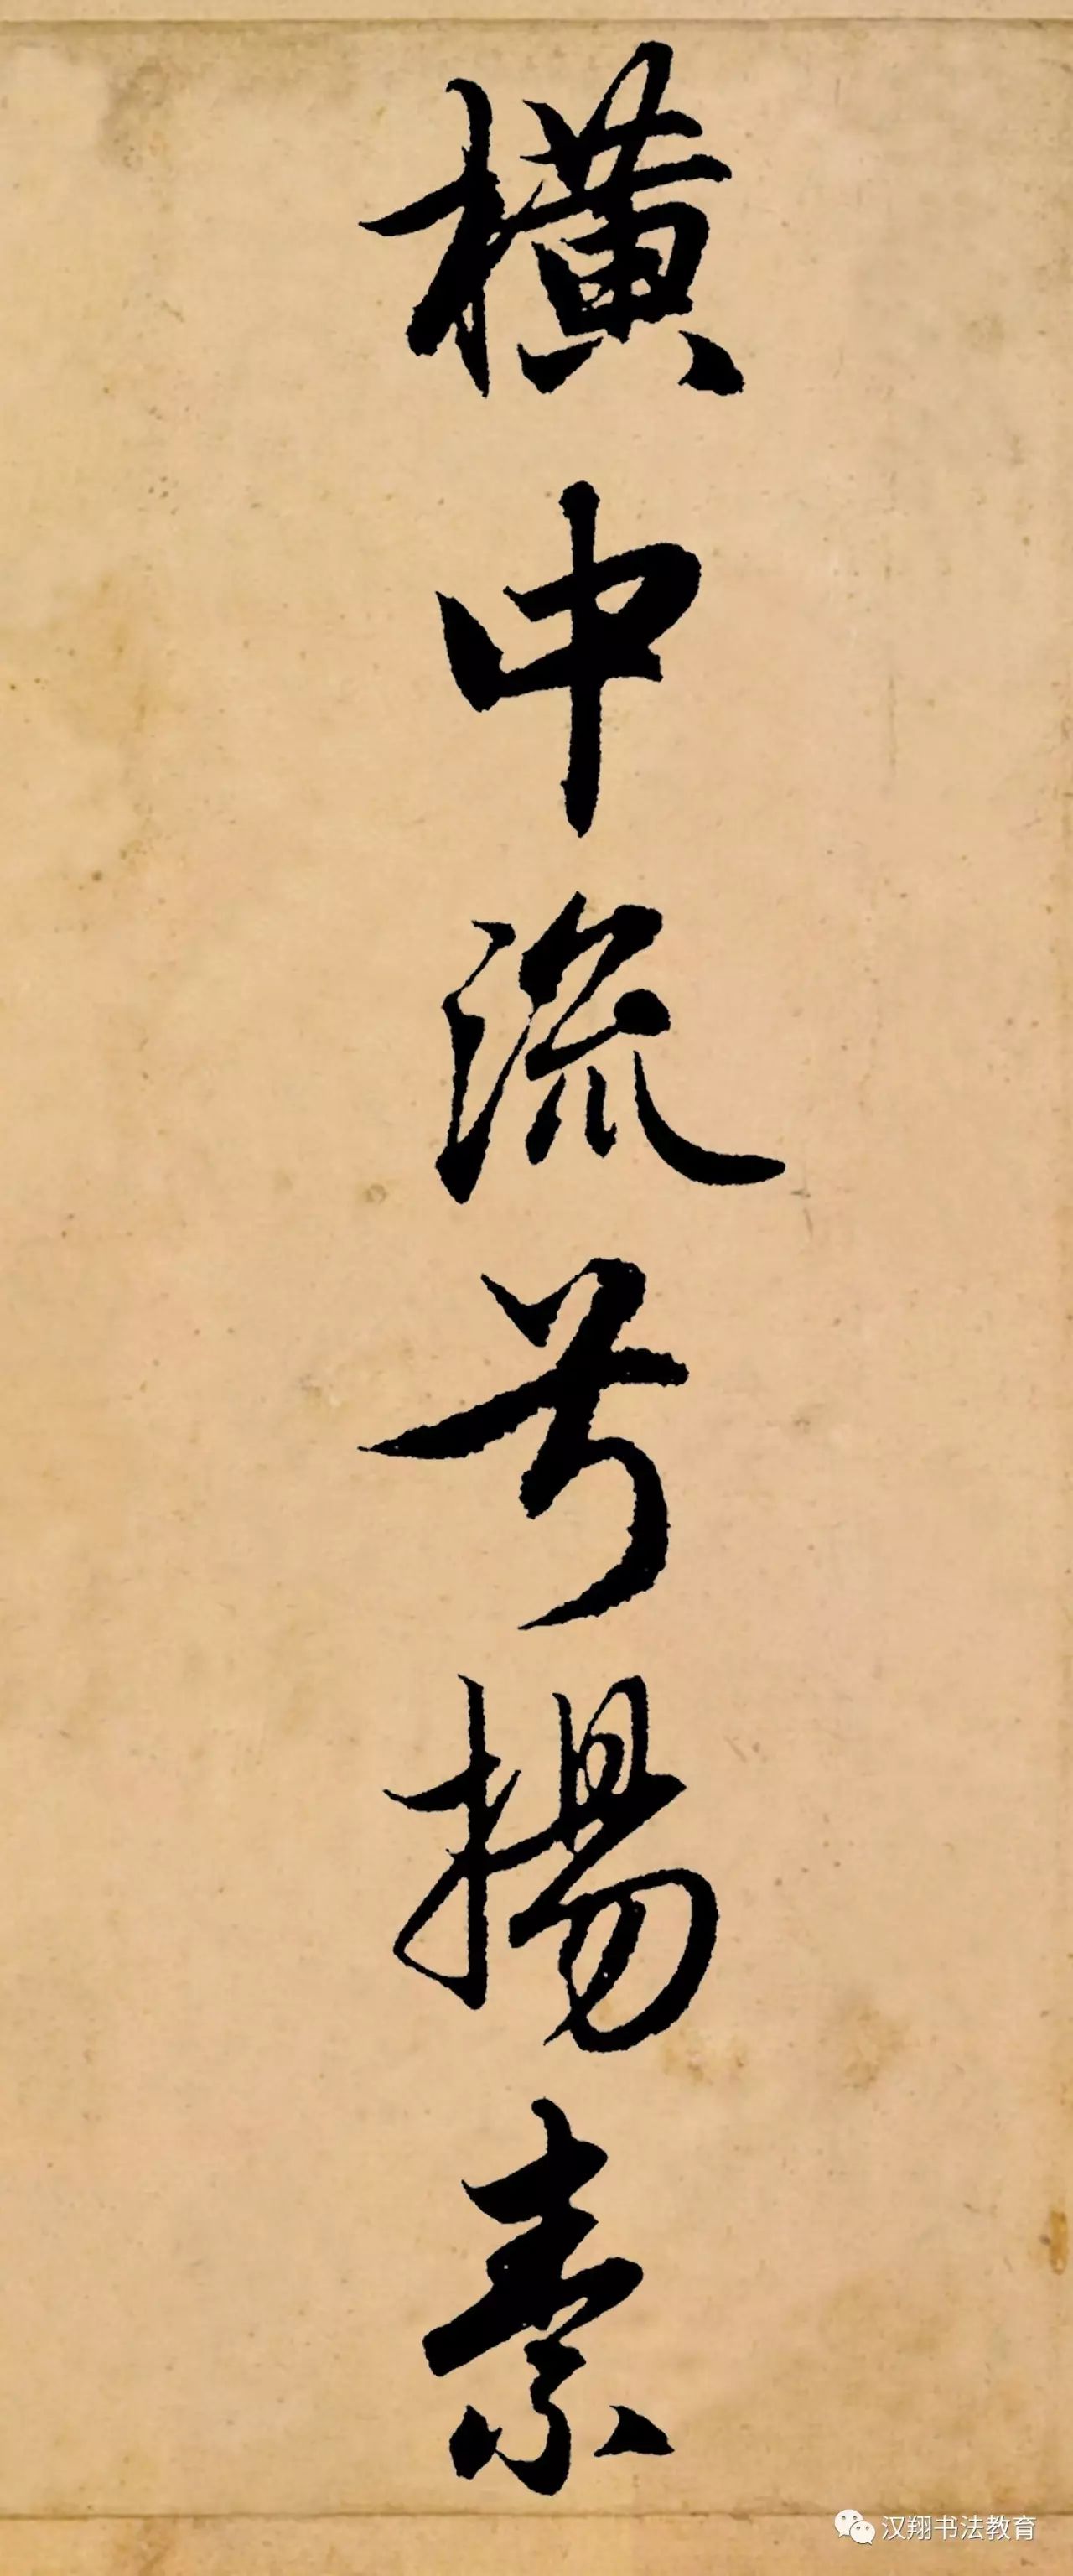 橫中流兮揚素
汉翔书法教育